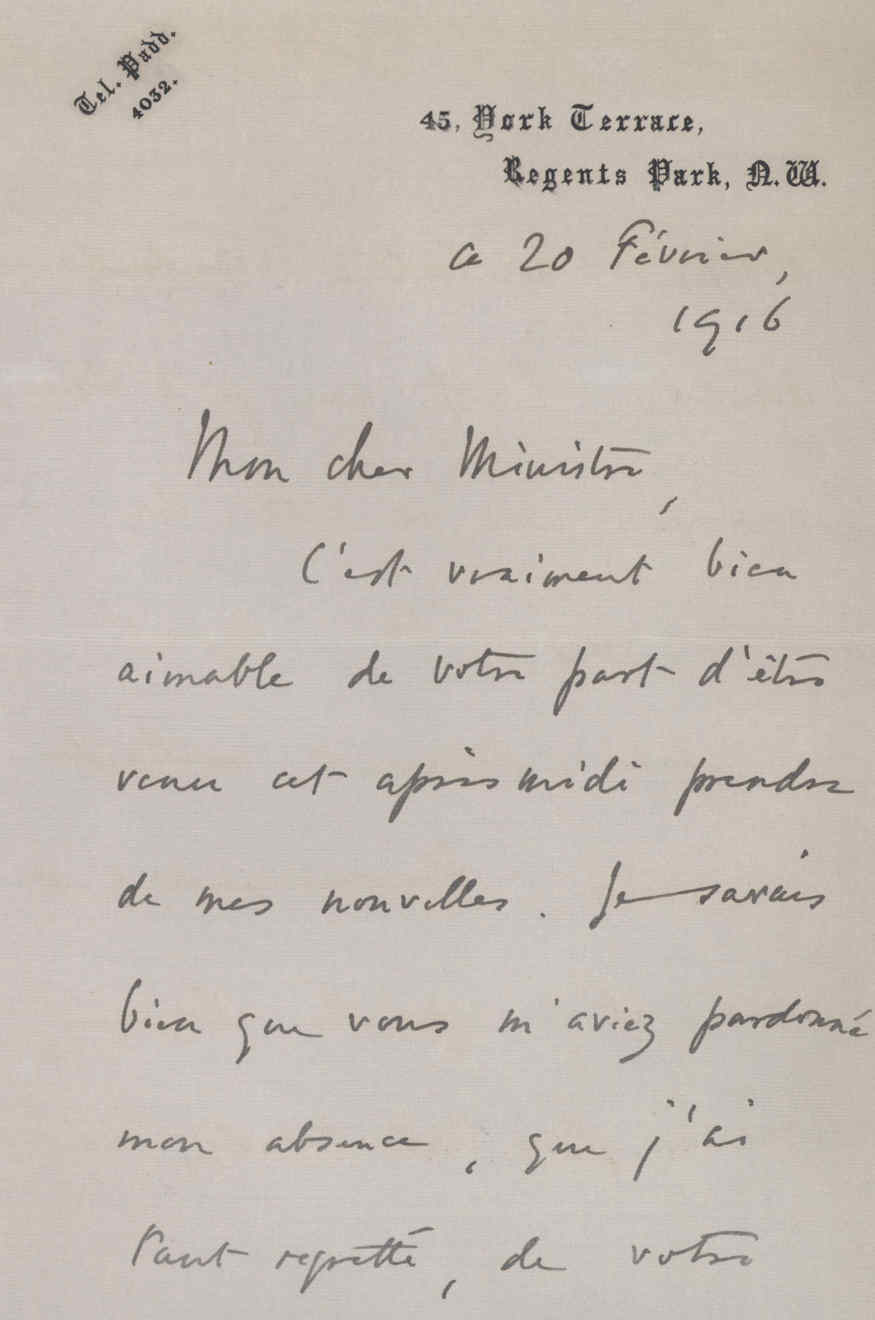 Tel. Padd.
4032.
45, York Terrace,
Regents Park, N.W.
ce 20 Février,
1916
Mon cher Ministre,
C'est vraiment bien
aimable de votre part d'être
venu cet après midi prendre
de mes nouvelles. Je savais
bien que vous m'aviez pardonné
mon absence, que j'ai
tant regretté, de votre